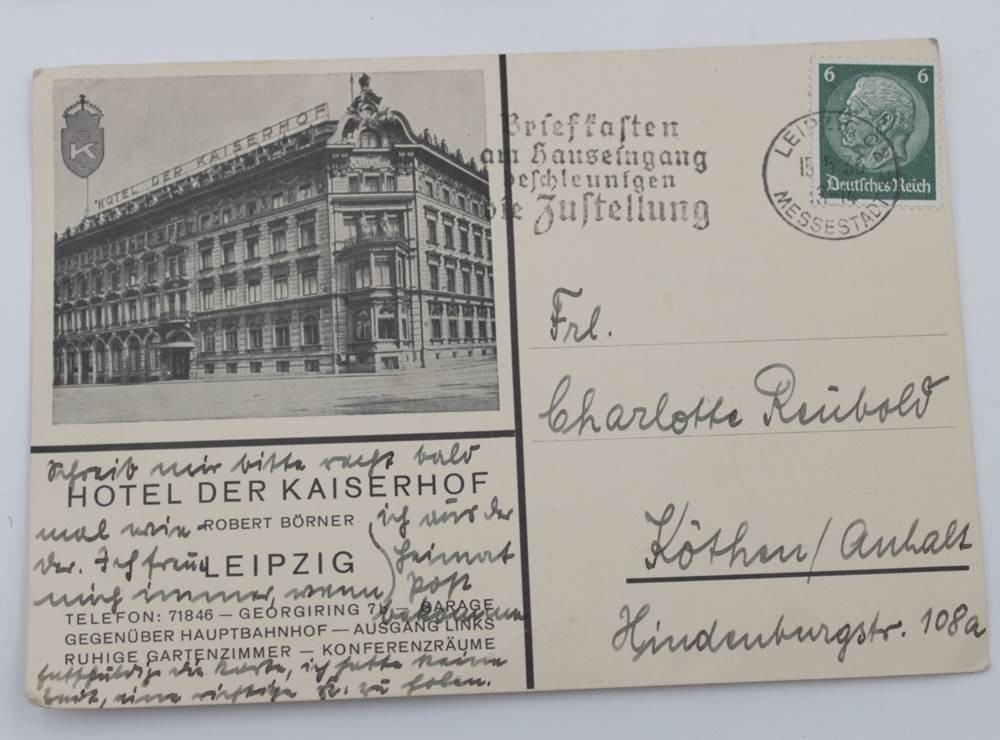 HOTEL DER KAISERHOF
K
Briefkasten
am Hauseingang
beschleunigen
die Zustellung
LEIPZIG C2
MESSESTADT
6 6
Deutsches Reich
Frl.
Charlotte Reubold
Köthen/Anhalt
Hindenburgstr. 108a
Schreib mir bitte recht bald
HOTEL DER KAISERHOF
mal wie-
ROBERT BÖRNER
der. Ich freue
LEIPZIG
mich immer, wenn
ich aus der
Heimat
Post
bekomme
TELEFON: 71846 — GEORGIRING 7b — GARAGE
GEGENÜBER HAUPTBAHNHOF — AUSGANG LINKS
RUHIGE GARTENZIMMER — KONFERENZRÄUME
Entschuldige die Karte, ich hatte keine
Zeit, eine richtige zu holen.